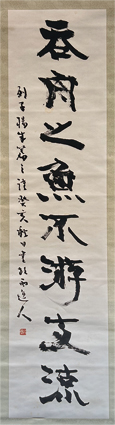 吞舟之魚不游支流
列子楊朱篇之語癸亥秋日
逸人